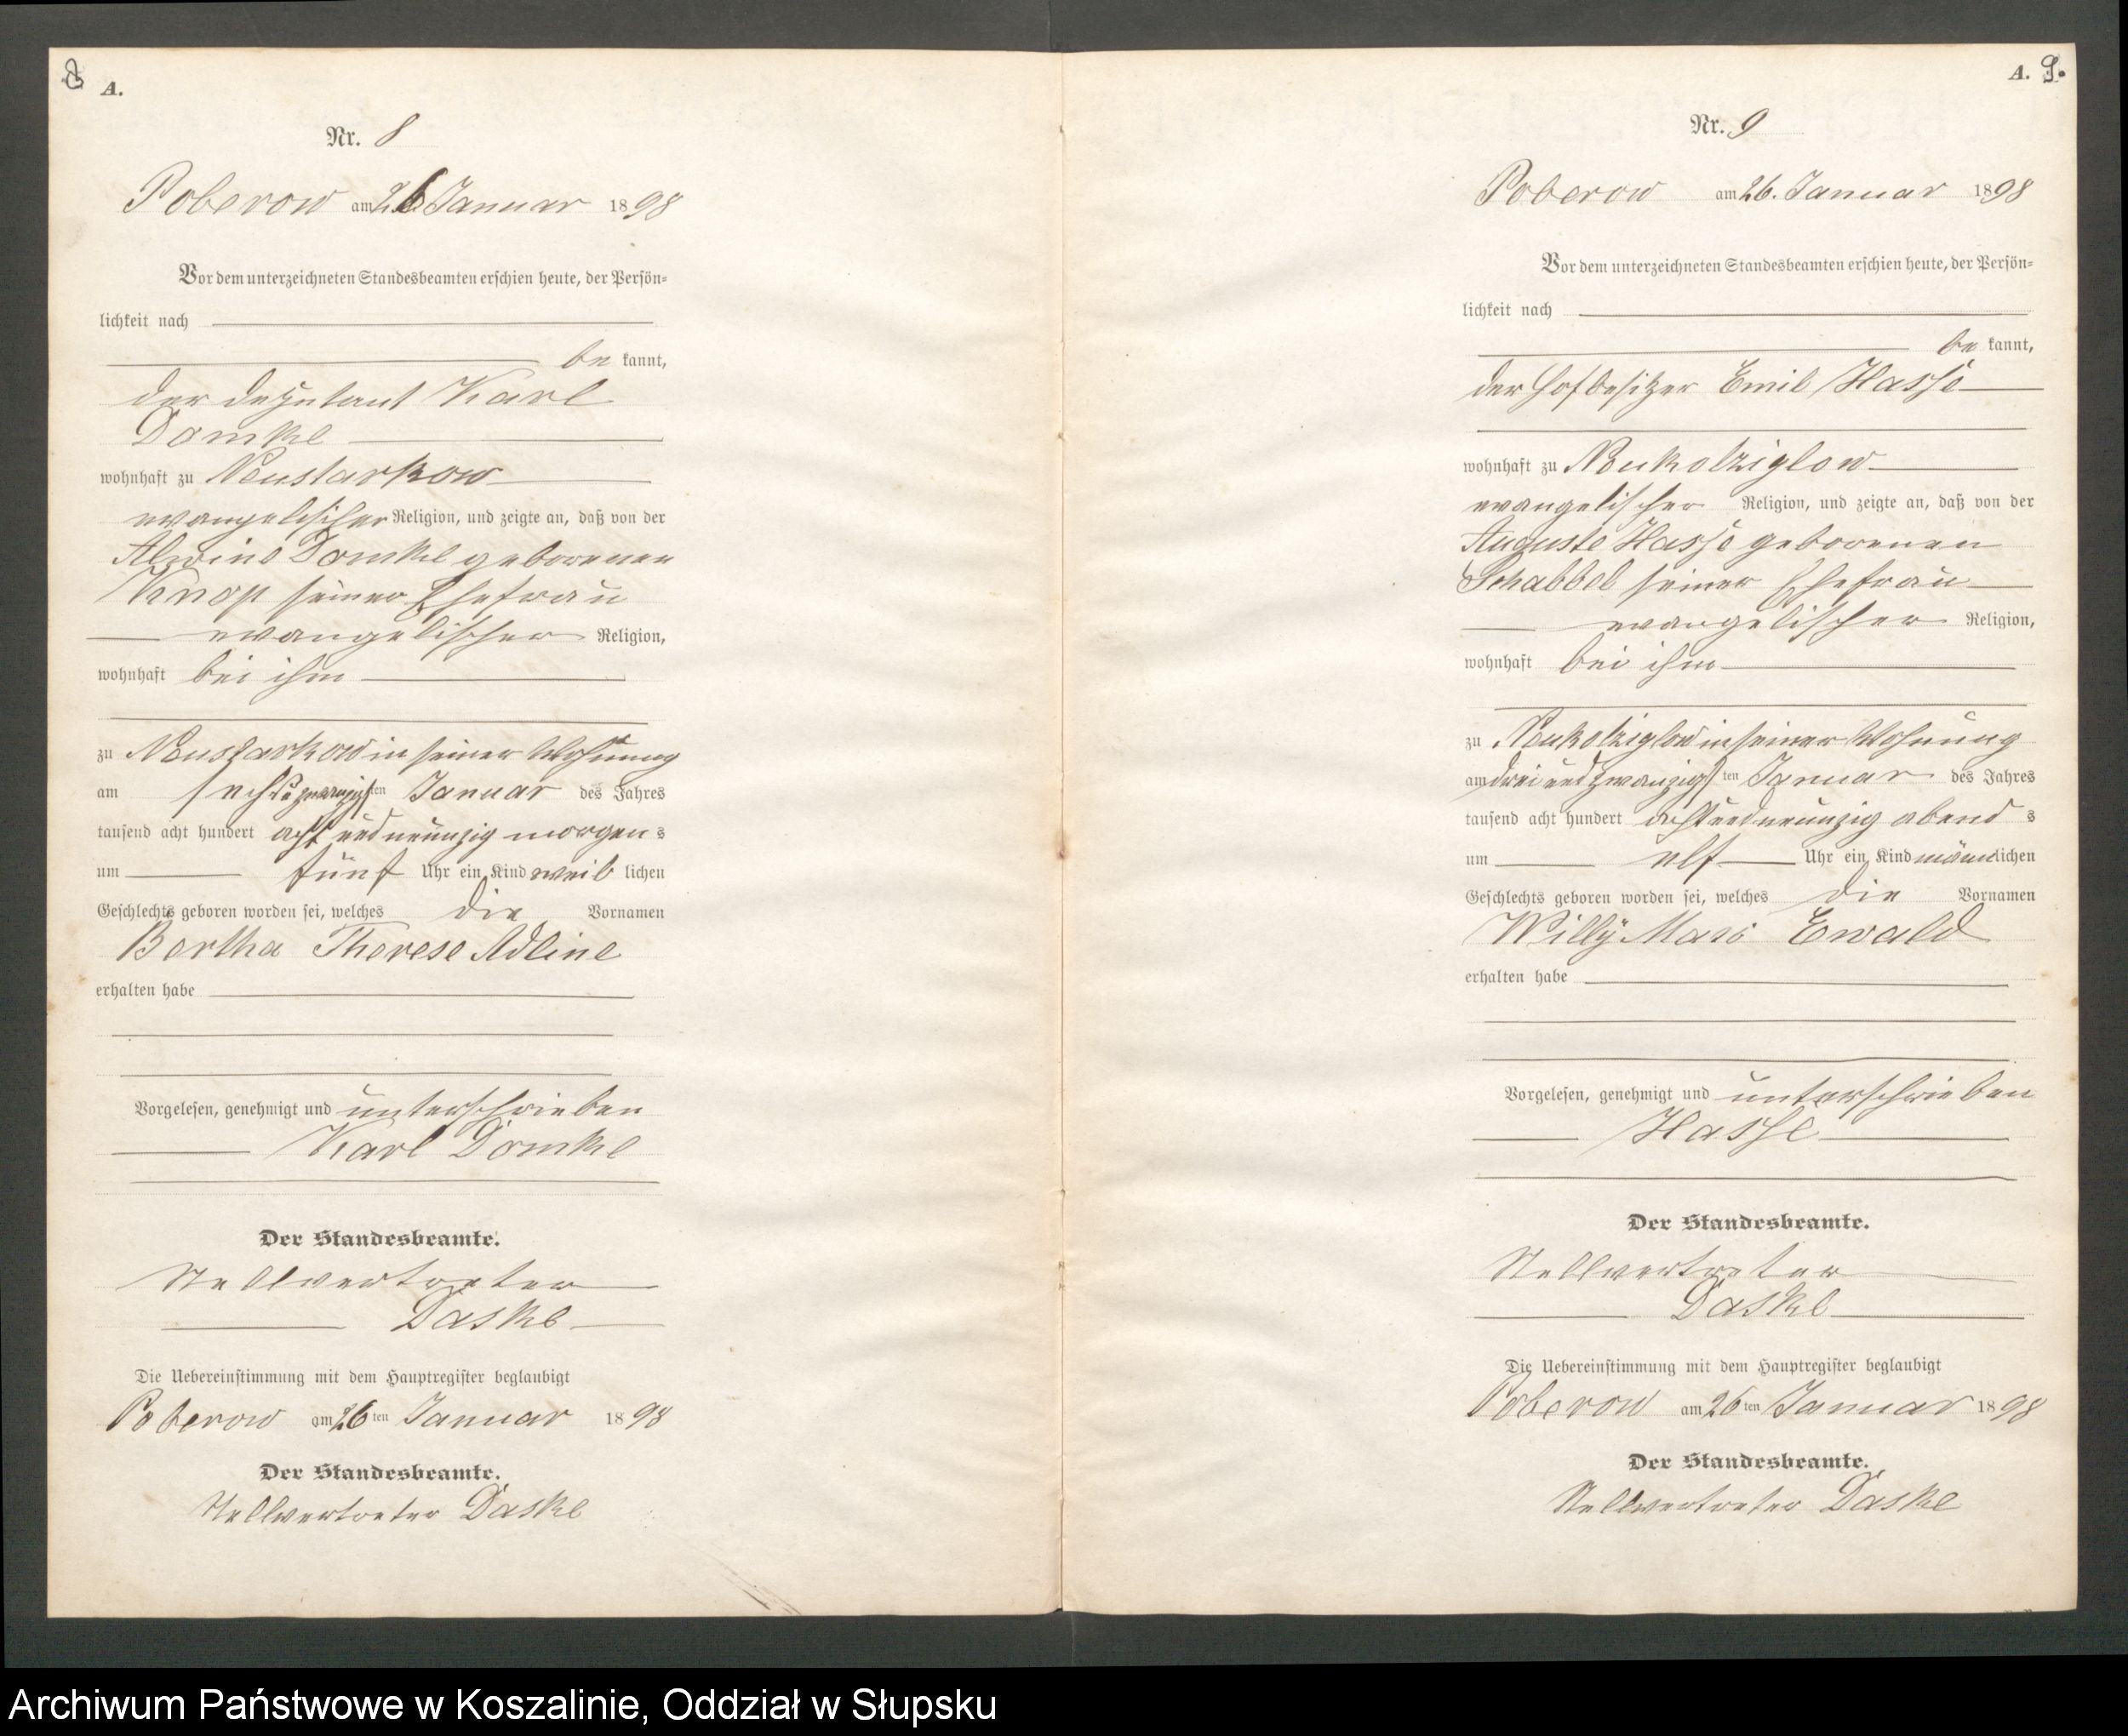 8
A.
Nr. 8
Poberow am 26 Januar 1898
Vor dem unterzeichneten Standesbeamten erschien heute, der Persön-
lichkeit nach
be kannt,
der Deputant Karl
Domke
wohnhaft zu Neustarkow
evangelischer Religion, und zeigte an, daß von der
Alwine Domke geborenen
Knop seiner Ehefrau
evangelischer Religion,
wohnhaft bei ihm
zu Neustarkow in seiner Wohnung
am ten Januar des Jahres
tausend acht hundert acht und neunzig morgens
um fünf Uhr ein Kind weiblichen
Geschlechts geboren worden sei, welches die Vornamen
Bertha Therese Adline
erhalten habe
Vorgelesen, genehmigt und unterschrieben
Karl Domke
Der Standesbeamte.
Stellvertreter
Daske
Die Uebereinstimmung mit dem Hauptregister beglaubigt
Poberow am 26ten Januar 1898
Der Standesbeamte.
Stellvertreter Daske
A. 9.
Nr. 9
Poberow am 26. Januar 1898
Vor dem unterzeichneten Standesbeamten erschien heute, der Persön-
lichkeit nach
be kannt,
der Hofbesitzer Emil Hasse
wohnhaft zu Neukolziglow
evangelischer Religion, und zeigte an, daß von der
Auguste Hasse geborenen
Schabbel seiner Ehefrau
evangelischer Religion,
wohnhaft bei ihm
zu Neukolziglow in seiner Wohnung
am drei und zwanzigsten Januar des Jahres
tausend acht hundert acht und neunzig abends
um elf Uhr ein Kind männlichen
Geschlechts geboren worden sei, welches die Vornamen
Willy Ewald
erhalten habe
Vorgelesen, genehmigt und unterschrieben
Hasse
Der Standesbeamte.
Stellvertreter
Daske
Die Uebereinstimmung mit dem Hauptregister beglaubigt
Poberow am 26ten Januar 1898
Der Standesbeamte.
Stellvertreter Daske
Archiwum Państwowe w Koszalinie, Oddział w Słupsku